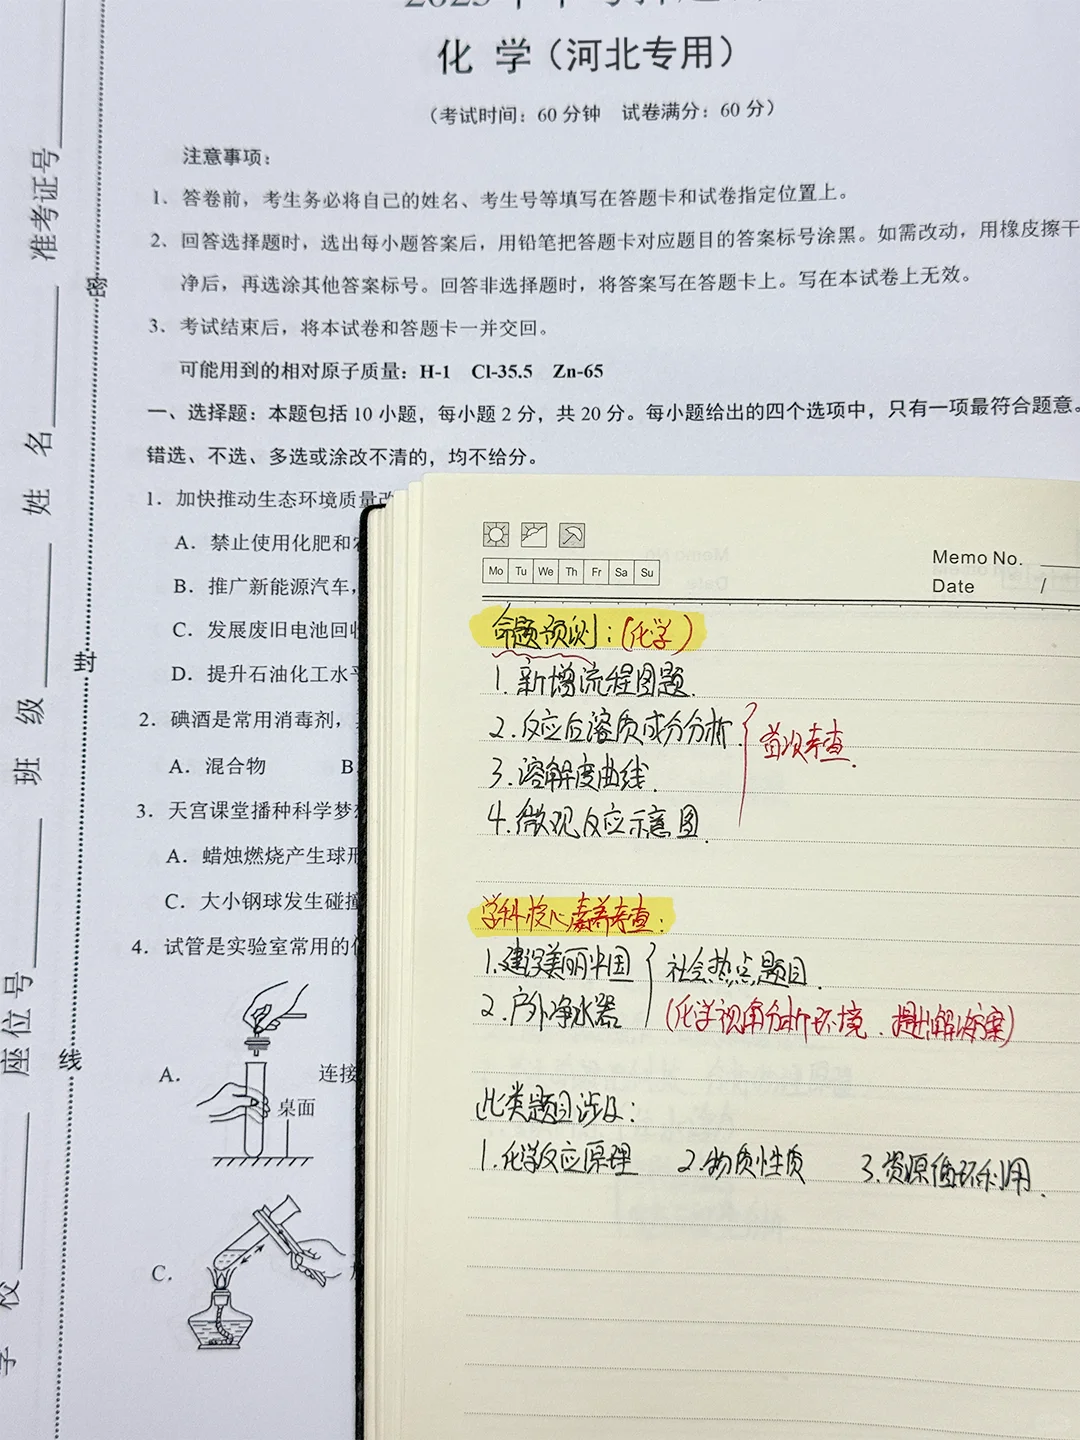 化 学（河北专用）
（考试时间：60 分钟 试卷满分：60 分）
注意事项：
1．答卷前，考生务必将自己的姓名、考生号等填写在答题卡和试卷指定位置上。
2．回答选择题时，选出每小题答案后，用铅笔把答题卡对应题目的答案标号涂黑。如需改动，用橡皮擦干
净后，再选涂其他答案标号。回答非选择题时，将答案写在答题卡上。写在本试卷上无效。
3．考试结束后，将本试卷和答题卡一并交回。
可能用到的相对原子质量：H-1 Cl-35.5 Zn-65
一、选择题：本题包括 10 小题，每小题 2 分，共 20 分。每小题给出的四个选项中，只有一项最符合题意。
错选、不选、多选或涂改不清的，均不给分。
1．加快推动生态环境质量改
A．禁止使用化肥和农
B．推广新能源汽车，
C．发展废旧电池回收
D．提升石油化工水平
2．碘酒是常用消毒剂，
A．混合物 B
3．天宫课堂播种科学梦想
A．蜡烛燃烧产生球形
C．大小钢球发生碰撞
4．试管是实验室常用的仪
A．
连接
桌面
C．
准考证号
姓 名
班 级
座位号
学 校
密
封
线
Mo Tu We Th Fr Sa Su
Memo No.
Date /
命题预测：(化学)
1.新增流程图题.
2.反应后溶质成分分析.
3.溶解度曲线.
首次考查.
4.微观反应示意图.
学科核心素养考查：
1.建设美丽中国
2.户外净水器
社会热点题目.
(化学视角分析环境．提出解决方案)
此类题目涉及：
1.化学反应原理 2.物质性质 3.资源循环利用.